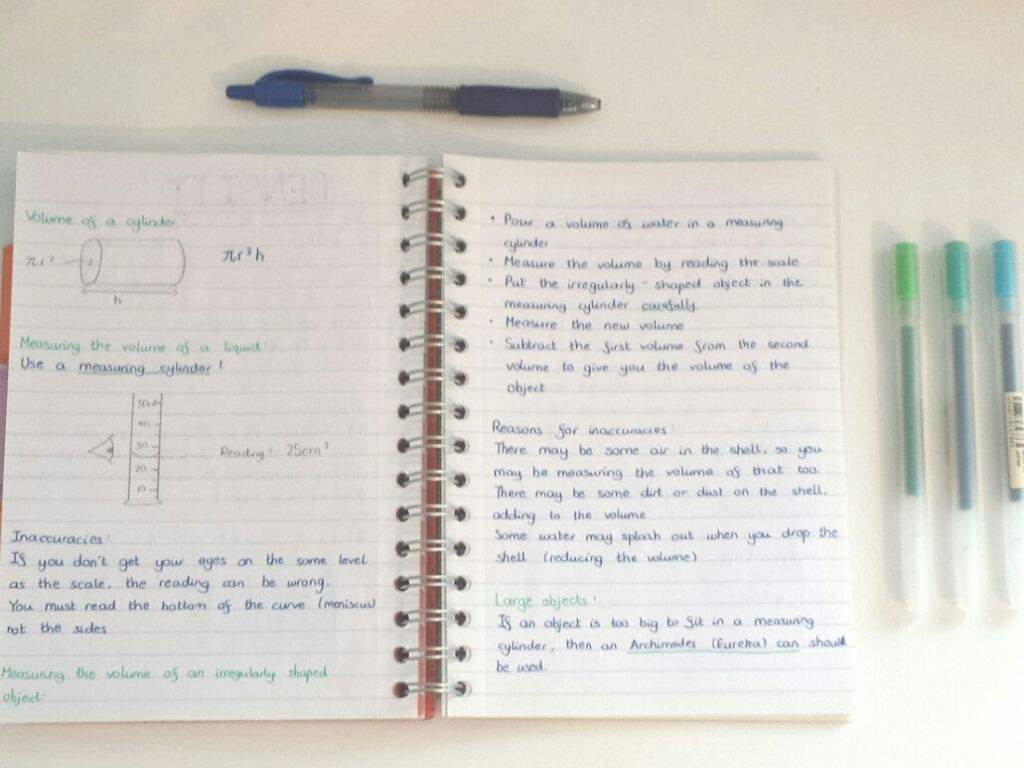 Volume of a cylinder:
πr²
πr²h
h
Measuring the volume of a liquid:
Use a measuring cylinder!
50
40
30
20
10
Reading = 25cm³
Inaccuracies:
If you don't get your eyes on the same level
as the scale, the reading can be wrong.
You must read the bottom of the curve (meniscus)
not the sides
Measuring the volume of an irregularly shaped
object:
DENSITY
• Pour a volume of water in a measuring
cylinder
• Measure the volume by reading the scale
• Put the irregularly-shaped object in the
measuring cylinder carefully.
• Measure the new volume
• Subtract the first volume from the second
volume to give you the volume of the
object
Reasons for inaccuracies:
There may be some air in the shell, so you
may be measuring the volume of that too.
There may be some dirt or dust on the shell,
adding to the volume
Some water may splash out when you drop the
shell (reducing the volume)
Large objects:
If an object is too big to fit in a measuring
cylinder, then an Archimedes (Eureka) can should
be used.